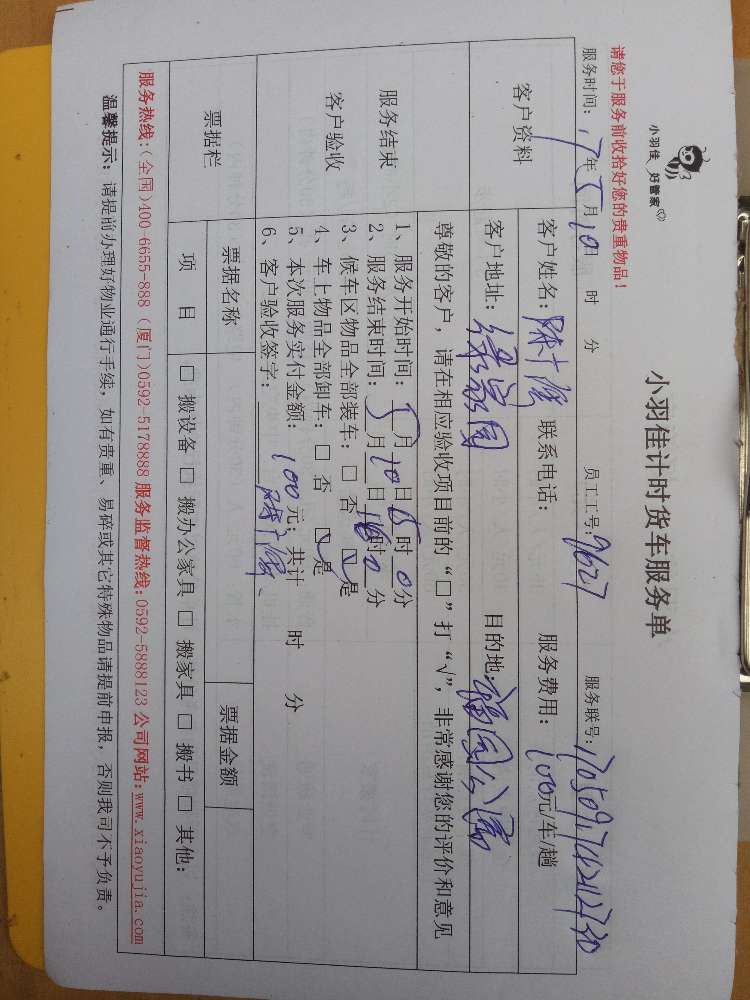 小羽佳 好管家
小羽佳计时货车服务单
请您于服务前收拾好您的贵重物品！
服务时间：17年5月10日 时 分 员工工号：9627 服务联号：
客户资料
客户姓名： 联系电话： 服务费用：100元/车/趟
客户地址： 目的地：福园公寓
服务结束
客户验收
尊敬的客户，请在相应验收项目前的“□”打“√”，非常感谢您的评价和意见
1、服务开始时间：5月10日15时0分
2、服务结束时间：5月10日16时0分
3、候车区物品全部装车：□ 否 ☑是
4、车上物品全部卸车：□ 否 ☑是
5、本次服务实付金额：100元；共计 时 分
6、客户验收签字：
票据栏
票据名称 票据金额
项 目 □ 搬设备 □ 搬办公家具 □ 搬家具 □ 搬书 □ 其他：
服务热线：（全国）400-6655-888（厦门）0592-5178888 服务监督热线：0592-5888123 公司网站：www.xiaoyujia.com
温馨提示：请提前办理好物业通行手续，如有贵重、易碎或其它特殊物品请提前申报，否则我司不予负责。